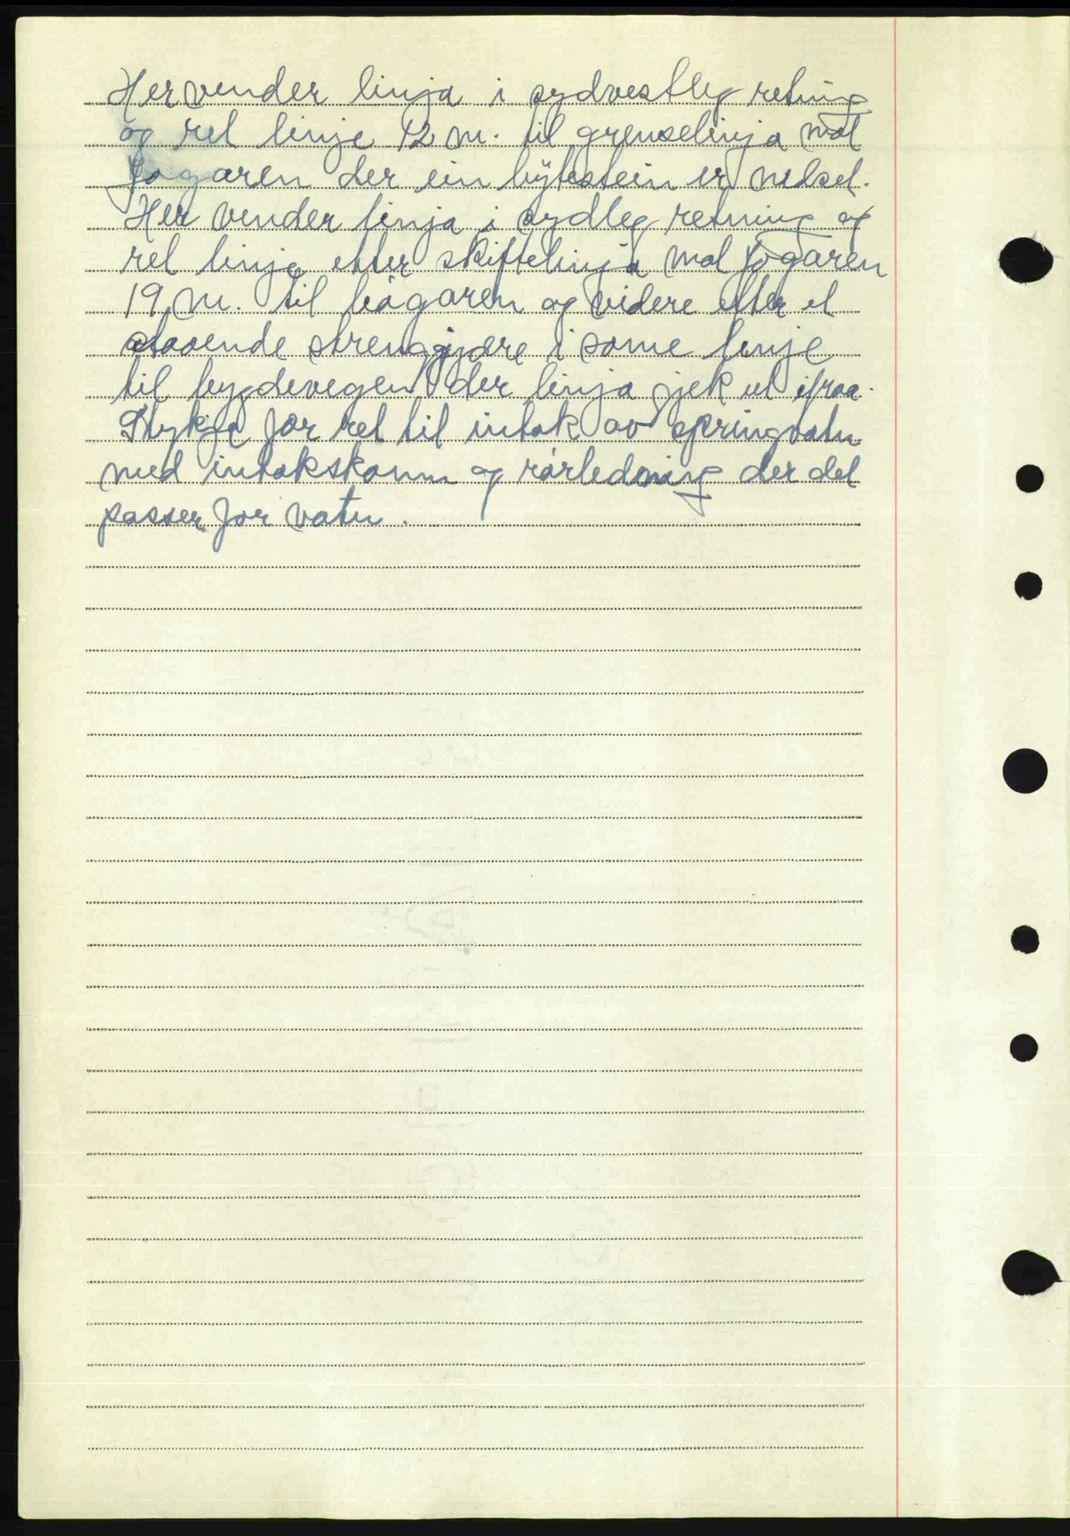 Her vender linja i sydvestleg retning
og ret linje 12 m. til grenselinja mot
Jogaren der ein bytestein er nedset.
Her vender linja i sydleg retning og
ret linje etter skiftelinja mot Jogaren
19 m. til bøgaren og videre etter et
staaende strenggjære i same linje
til bygdevegen der linja gjek ut ifraa.
Stykja før ret til intak av springvatn
med intakskom og rørledning der det
passer for vatn.